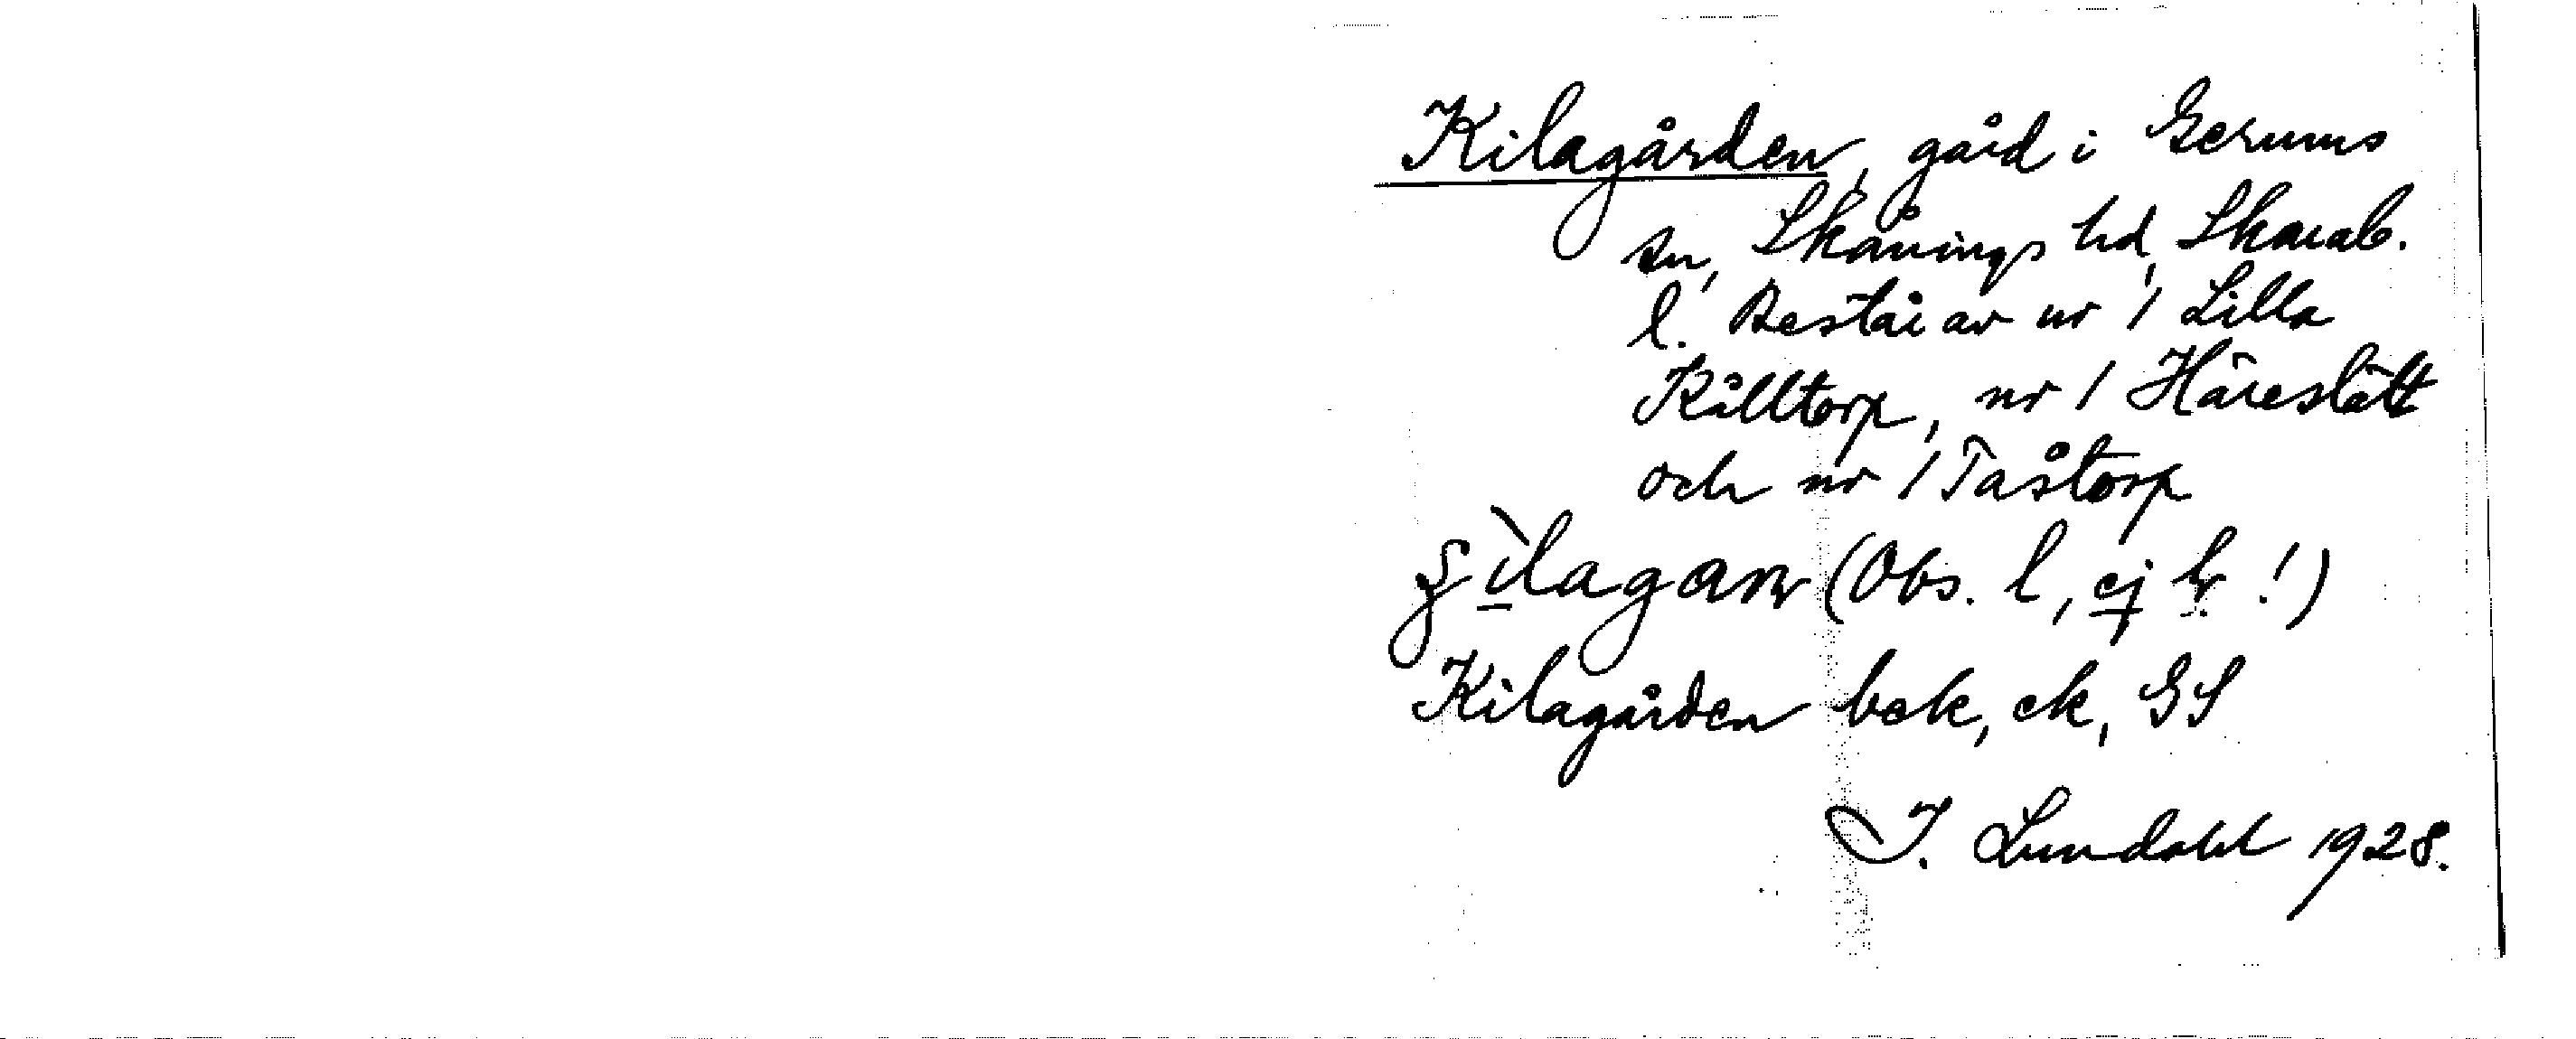 Kilagården, gård i Gerums
sn, Skånings hd, Skarab.
l. Består av nr 1 Lilla
Kålltorp, nr 1 Häreslätt
och nr 1 Taståtorp
(Obs. l, ej !)
Kilagården bek, ek, GS
I. Lundahl 1928.